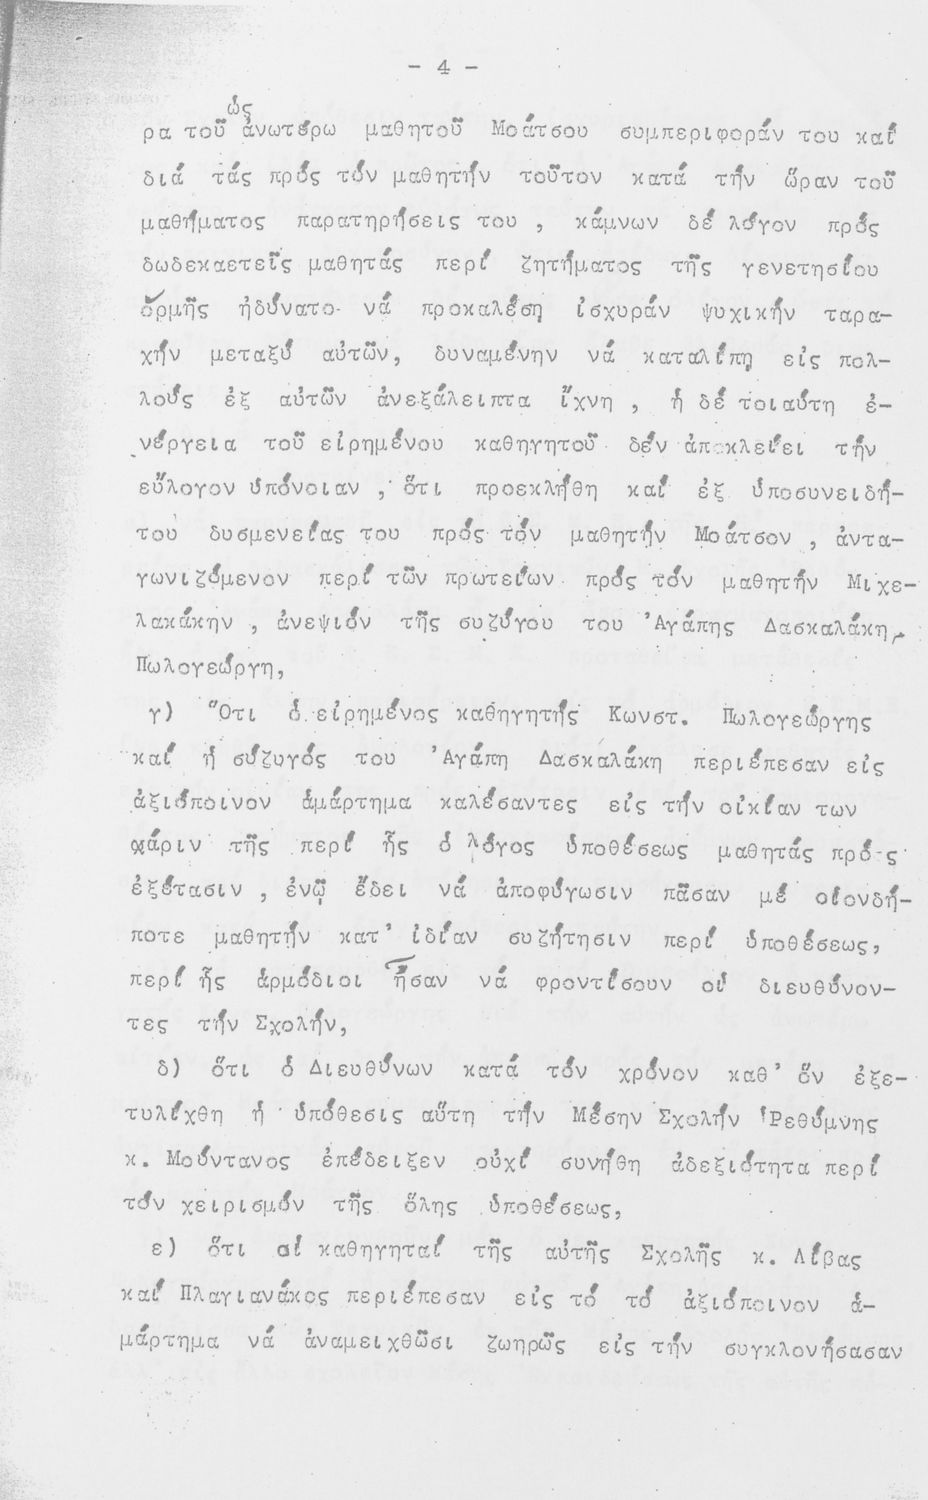 - 4 -
ὡς
ρα τοῦ ἀνωτέρω μαθητοῦ Μοάτσου συμπεριφοράν του καί
διά τάς πρός τόν μαθητήν τοῦτον κατά τήν ὥραν τοῦ
μαθήματος παρατηρήσεις του , κάμνων δέ λόγον πρός
δωδεκαετεῖς μαθητάς περί ζητήματος τῆς γενετησίου
ὁρμῆς ἠδύνατο νά προκαλέση ἰσχυράν ψυχικήν ταρα-
χήν μεταξύ αὐτῶν, δυναμένην νά καταλίπη εἰς πολ-
λούς ἐξ αὐτῶν ἀνεξάλειπτα ἴχνη , ἡ δέ τοιαύτη ἐ-
νέργεια τοῦ εἰρημένου καθηγητοῦ δέν ἀποκλείει τήν
εὔλογον ὑπόνοιαν , ὅτι προεκλήθη καί ἐξ ὑποσυνειδή-
του δυσμενείας του πρός τόν μαθητήν Μοάτσον , ἀντα-
γωνιζόμενον περί τῶν πρωτείων πρός τόν μαθητήν Μιχε-
λακάκην , ἀνεψιόν τῆς συζύγου του Ἀγάπης Δασκαλάκη,
Πωλογεώργη,
γ) Ὅτι ὁ εἰρημένος καθηγητής Κωνστ. Πωλογεώργης
καί ἡ σύζυγός του Ἀγάπη Δασκαλάκη περιέπεσαν εἰς
ἀξιόποινον ἁμάρτημα καλέσαντες εἰς τήν οἰκίαν των
χάριν τῆς περί ἧς ὁ λόγος ὑποθέσεως μαθητάς πρός
ἐξέτασιν , ἐνῷ ἔδει νά ἀποφύγωσιν πᾶσαν μέ οἱονδή-
ποτε μαθητήν κατ' ἰδίαν συζήτησιν περί ὑποθέσεως,
περί ἧς ἁρμόδιοι ἦσαν νά φροντίσουν οἱ διευθύνον-
τες τήν Σχολήν,
δ) ὅτι ὁ Διευθύνων κατά τόν χρόνον καθ' ὅν ἐξε-
τυλίχθη ἡ ὑπόθεσις αὕτη τήν Μέσην Σχολήν Ῥεθύμνης
κ. Μούντανος ἐπέδειξεν οὐχί συνήθη ἀδεξιότητα περί
τόν χειρισμόν τῆς ὅλης ὑποθέσεως,
ε) ὅτι αἱ καθηγηταί τῆς αὐτῆς Σχολῆς κ. Λίβας
καί Πλαγιανάκος περιέπεσαν εἰς τό τό ἀξιόποινον ἁ-
μάρτημα νά ἀναμειχθῶσι ζωηρῶς εἰς τήν συγκλονήσασαν